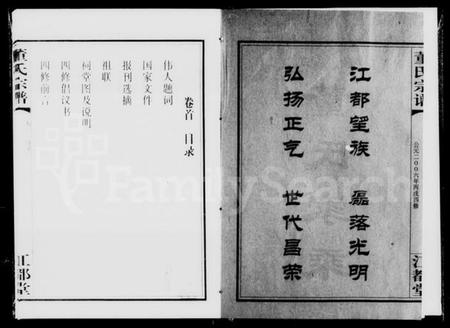 董氏宗谱
公元二00六年丙戌四修
江都堂
江都望族 磊落光明
弘扬正气 世代昌荣
卷首 目录
伟人题词
国家文件
报刊选摘
祖联
祠堂图及说明
四修倡议书
四修前言
董氏宗谱
江都堂
FamilySearch